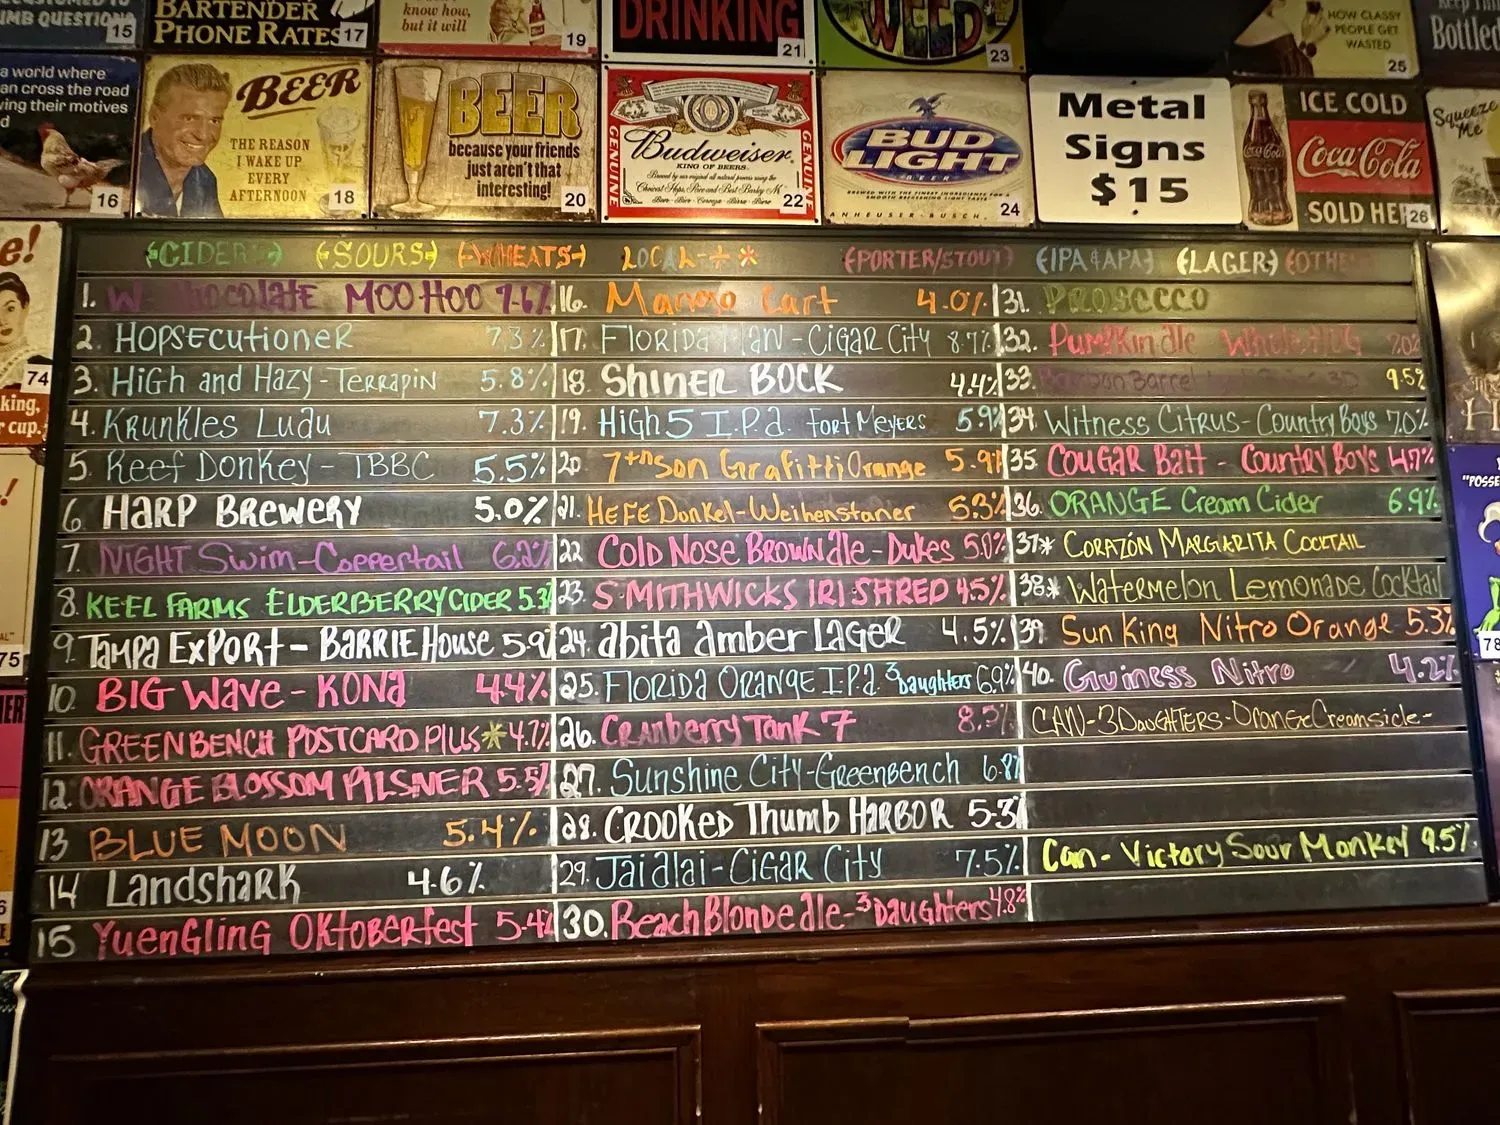 CUSTOMED TO
UMB QUESTIONS
15
BARTENDER
PHONE RATES
17
know how,
but it will
19
DRINKING
21
WEED
23
HOW CLASSY
PEOPLE GET
WASTED
25
Bottled
a world where
an cross the road
ving their motives
d
16
BEER
THE REASON
I WAKE UP
EVERY
AFTERNOON
18
BEER
because your friends
just aren't that
interesting!
20
GENUINE
Budweiser
KING OF BEERS
GENUINE
22
BUD
LIGHT
BEER
ANHEUSER-BUSCH,
24
Metal
Signs
$15
ICE COLD
Coca-Cola
Coca-Cola
SOLD HE
26
Squeeze
Me
e!
74
king,
r cup.
!
75
"POSSE
78
{CIDER} {SOURS} {WHEATS} LOCAL-→ * {PORTER/STOUT} {IPA&APA} {LAGER} {OTHE
1. W Chocolate MOO HOO 7.6%
2. HOPSECUTIONER 7.3%
3. HiGH and HAZY-TERRAPIN 5.8%
4. KRUNKLES LUDU 7.3%
5. Reef DONKEY - TBBC 5.5%
6. HARP BREWERY 5.0%
7. NIGHT Swim-Coppertail 6.2%
8. KEEL FARMS ELDERBERRY CIDER 5.3
9. TAMPA EXPORT - BARRIE HOUSE 5.9
10. BIG WAVE - KONA 4.4%
11. GREENBENCH POSTCARD PILUS* 4.7%
12. ORANGE BLOSSOM PILSNER 5.5%
13 BLUE MOON 5.4%
14 LANDSHARK 4.6%
15 YUENGLING OKTOBERFEST 5.4%
16. Mango Cart 4.0%
17. FLORIDA MAN - CIGAR CITY 8.7%
18. SHINER BOCK 4.4%
19. HIGH 5 I.P.A. FORT MEYERS 5.9%
20. 7thSON GRAFITTI ORANGE 5.9%
21. HEFE DONKEL-WEIHENSTANER 5.3%
22 COLD NOSE BROWN ALE - DUKES 5.0%
23. SMITHWICKS IRISH RED 4.5%
24. ABITA AMBER LAGER 4.5%
25. FLORIDA ORANGE I.P.A. 3Daughters 6.9%
26. CRANBERRY TANK 7 8.5%
27. SUNSHINE CITY-GREENBENCH 6.8%
28. CROOKED THUMB HARBOR 5.3%
29. JAIALAI-CIGAR CITY 7.5%
30. BEACH BLONDE ALE-3Daughters 4.8%
31. PROSCCCO
32. PUMPKIN ALE WHOLE HOG 7.0%
33. Bourbon Barrel 9.5%
34. WITNESS CITRUS-COUNTRY BOYS 7.0%
35. COUGAR BAIT - COUNTRY BOYS 4.7%
36. ORANGE Cream Cider 6.9%
37* CORAZÓN MARGARITA COCKTAIL
38* WATERMELON LEMONADE COCKTAIL
39 Sun King Nitro Orange 5.3%
40. Guiness Nitro 4.2%
CAN-3DAUGHTERS-ORANGECREAMSICLE-
Can-VICTORY SOUR MONKEY 9.5%